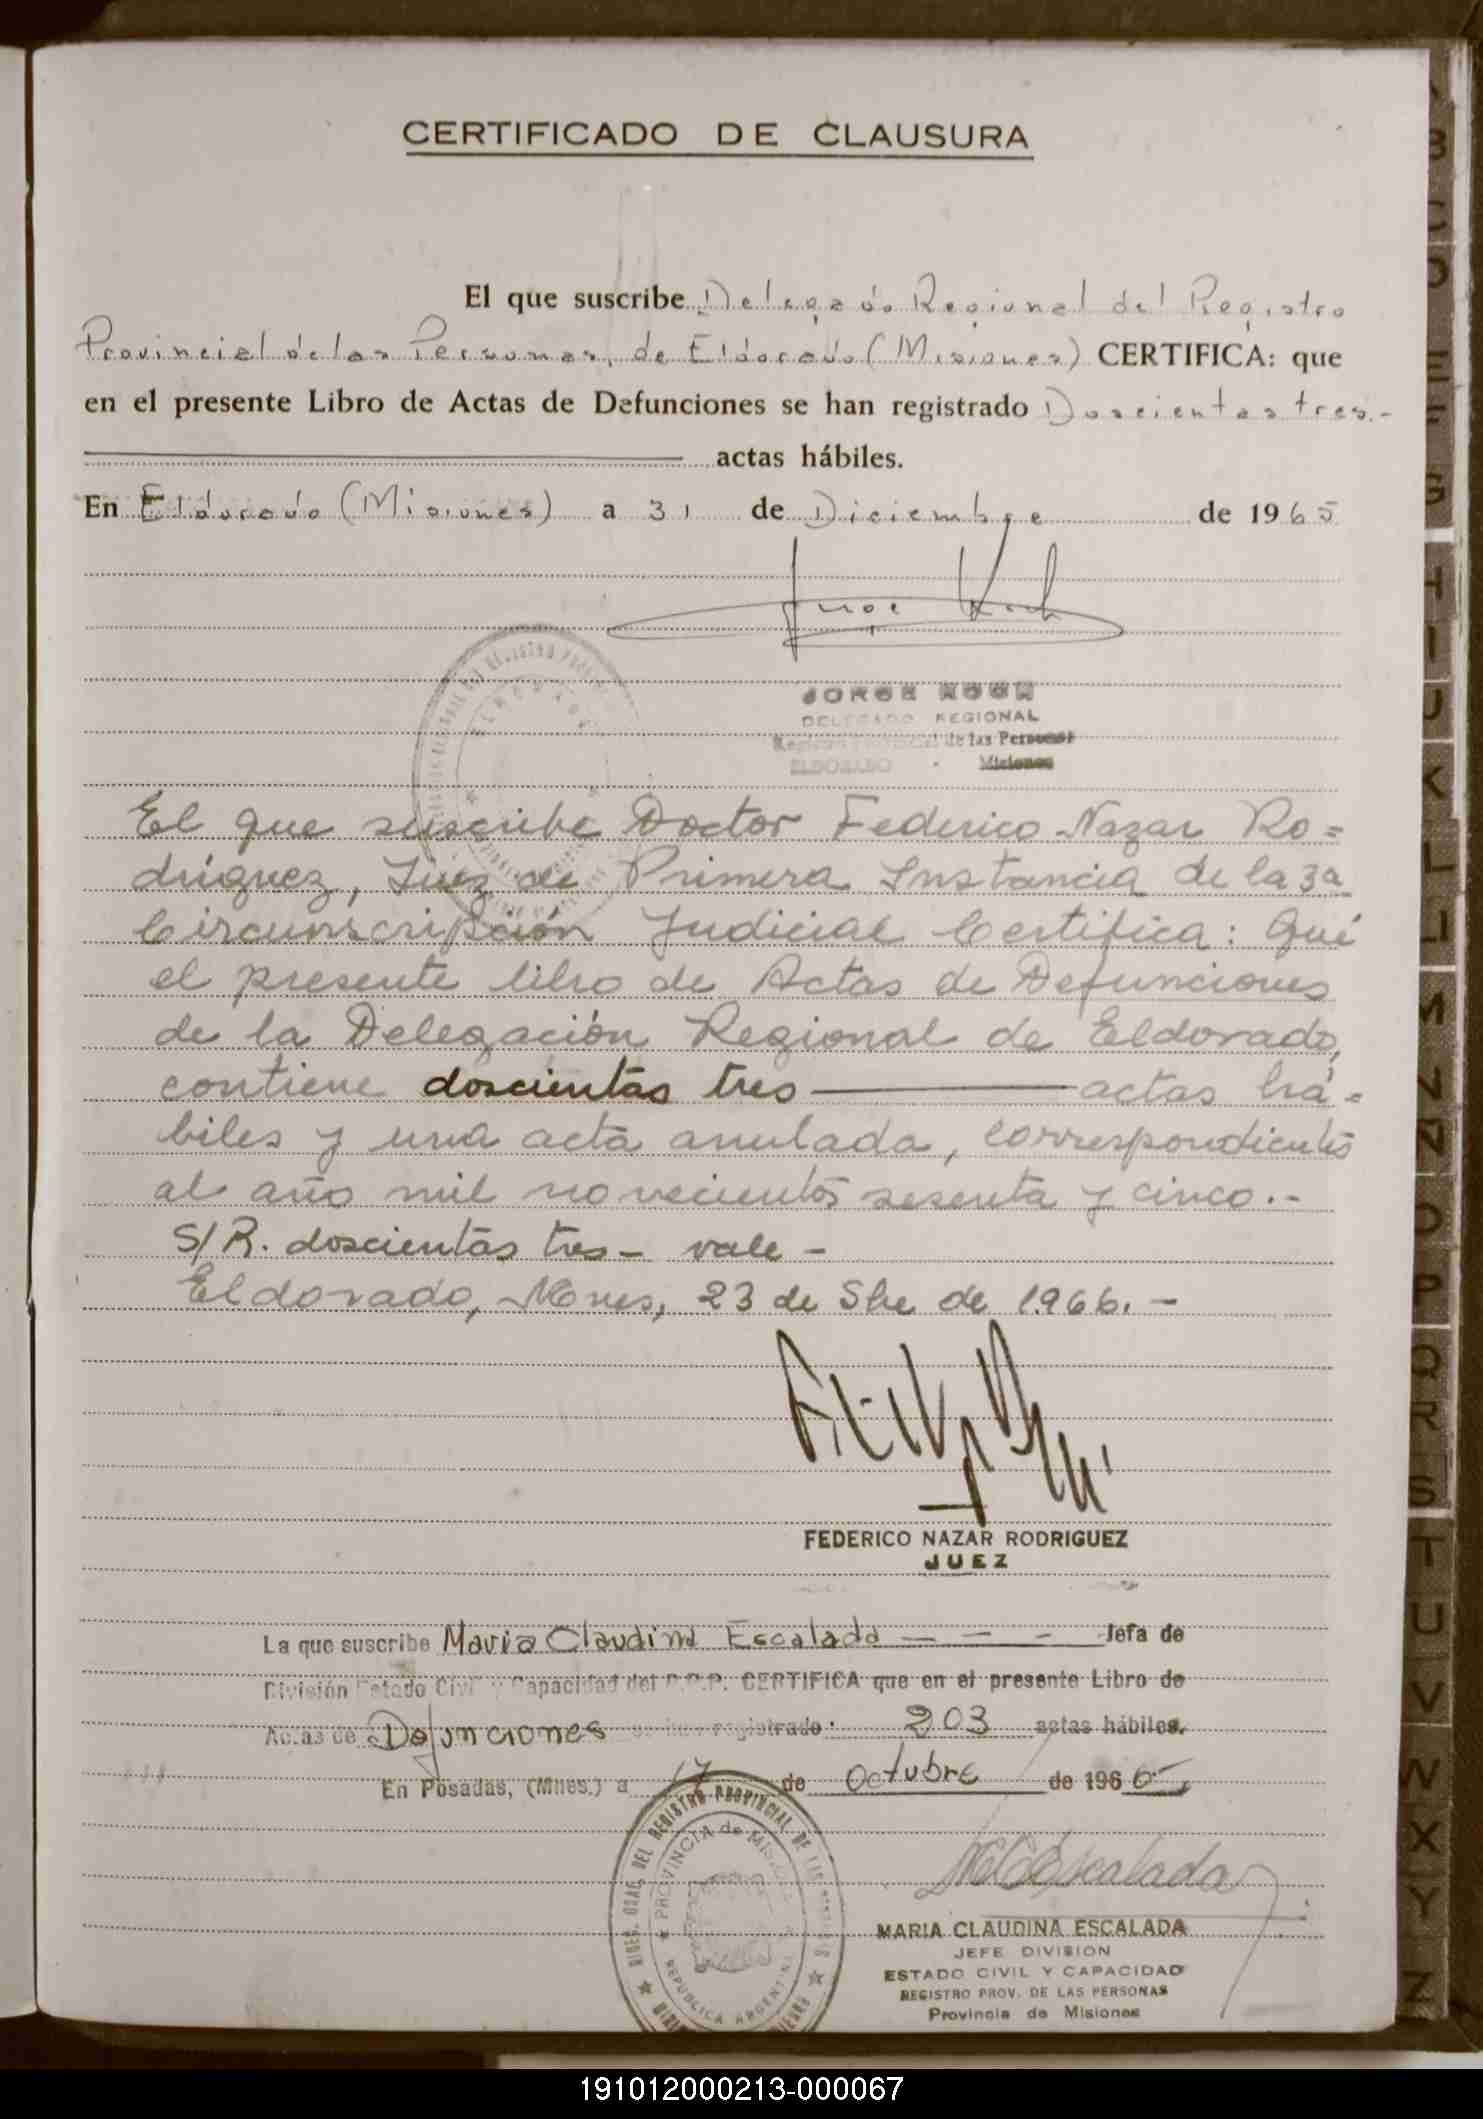 CERTIFICADO DE CLAUSURA
El que suscribe Delegado Regional del Registro
Provincial de las Personas, de Eldorado (Misiones) CERTIFICA: que
en el presente Libro de Actas de Defunciones se han registrado Doscientas tres.-
actas hábiles.
En Eldorado (Misiones) a 31 de Diciembre de 1965
Jorge Koch
JORGE KOCH
DELEGADO REGIONAL
Registro Provincial de las Personas
ELDORADO - Misiones
El que suscribe Doctor Federico Nazar Ro=
dríguez, Juez de Primera Instancia de la 3a
Circunscripción Judicial Certifica: Qué
el presente libro de Actas de Defunciones
de la Delegación Regional de Eldorado,
contiene doscientas tres actas há-
biles y una acta anulada, correspondientes
al año mil novecientos sesenta y cinco.-
S/R. doscientas tres - vale -
Eldorado, Mnes, 23 de Sbe de 1966. -
FEDERICO NAZAR RODRIGUEZ
JUEZ
La que suscribe Maria Claudina Escalada - - - Jefa de
División Estado Civil y Capacidad del R.P.P. CERTIFICA que en el presente Libro de
Actas de Defunciones se han registrado: 203 actas hábiles.
En Posadas, (Mnes.) a 17 de Octubre de 1966
DIREC. GRAL. DEL REGISTRO PROVINCIAL DE LAS PERSONAS
PROVINCIA de MISIONES
REPUBLICA ARGENTINA
MCEscalada
MARIA CLAUDINA ESCALADA
JEFE DIVISION
ESTADO CIVIL Y CAPACIDAD
REGISTRO PROV. DE LAS PERSONAS
Provincia de Misiones
B
C
D
E
F
G
H
I
J
K
L
LL
M
N
Ñ
O
P
Q
R
S
T
U
V
W
X
Y
Z
191012000213-000067